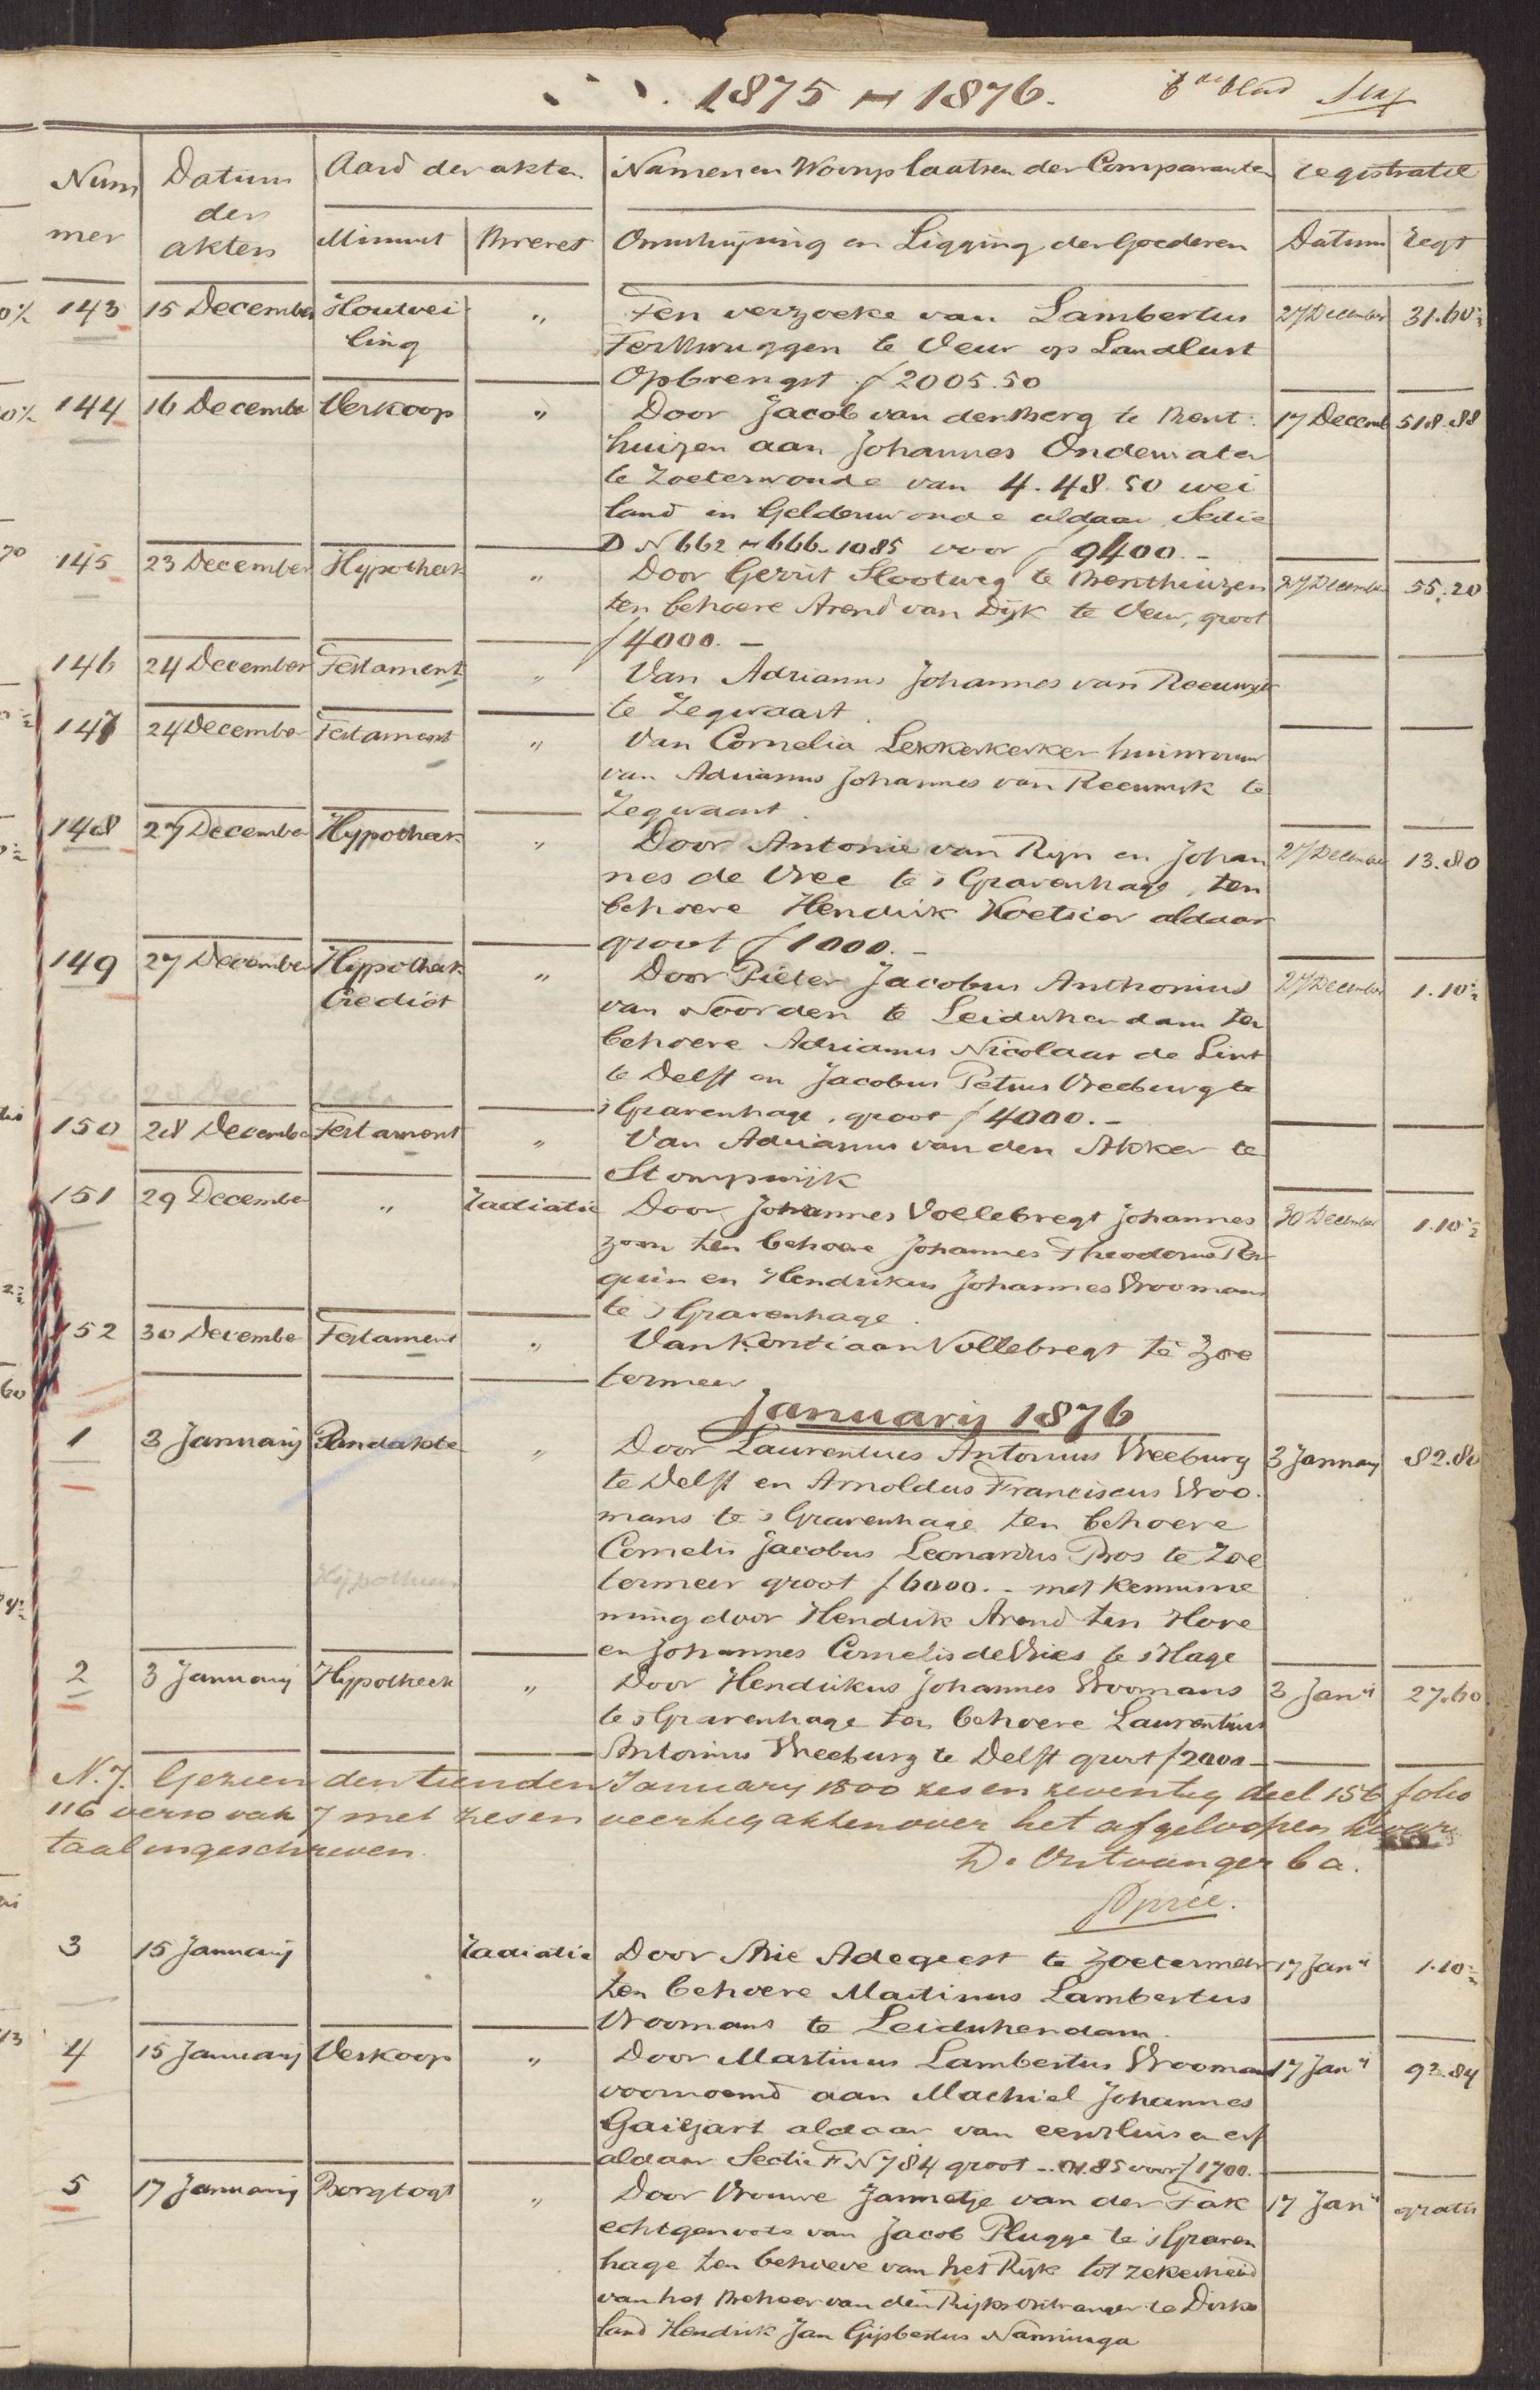 1875 – 1876. 6de blad
Num Datum Aard der akten Namen en Woonplaatsen der Comparanten registratie
mer der akten Minuut Brevet Omschrijving en Ligging der Goederen Datum regt
143 15 December Houtvei „ Ten verzoeke van Lambertus 27 December 31.60½
ling Terbruggen te Veur op Landlust
Opbrengst f 2005.50
144 16 Decembe Verkoop „ Door Jacob van den Berg te Bent 17 Decemb 518.88
huizen aan Johannes Ondewater
te Zoeterwoude van 4.48.50 wei
land in Gelderswoude aldaar Sectie
D N 662 – 666. 1085 voor f 9400.–
145 23 December Hypotheek „ Door Gerrit Slootweg te Benthuizen 27 December 55.20
ten behoeve Arend van Dijk te Veur, groot
f 4000.–
146 24 December Testament „ Van Adrianus Johannes van Reeuwijk
te Zegwaart.
147 24 December Testament „ Van Cornelia Lekkerkerker huisvrouw
van Adrianus Johannes van Reeuwijk te
Zegwaart.
148 27 December Hypotheek „ Door Antonie van Rijn en Johan 27 December 13.80
nes de Vree te s Gravenhage, ten
behoeve Hendrik Koetsier aldaar
groot f 1000.–
149 27 December Hypotheek „ Door Pieter Jacobus Anthonius 27 December 1.10½
Crediet van Noorden te Leidschendam ten
behoeve Adrianus Nicolaas de Lint
te Delft en Jacobus Petrus Vreeburg te
s Gravenhage, groot f 4000.–
150 28 Decembe Testament „ Van Adrianus van den Akker te
Stompwijk
151 29 December „ radiatie Door Johannes Vollebregt Johannes 30 December 1.10½
zoon ten behoeve Johannes Theodorus Per
quin en Hendrikus Johannes Vroomans
te s Gravenhage.
152 30 Decembe Testament „ Van Korstiaan Vollebregt te Zoe
termeer
Januarij 1876
1 3 Januarij Pandakte „ Door Laurentius Antonius Vreeburg 3 January 82.80
te Delft en Arnoldus Franciscus Vroo
mans te s Gravenhage ten behoeve
Cornelis Jacobus Leonardus Bos te Zoe
termeer groot f 6000.– met kennisne
ming door Hendrik Arend ten Hove
en Johannes Cornelis de Vries te s Hage
2 3 Januarij Hypotheek „ Door Hendrikus Johannes Vroomans 3 Janij 27.60
te s Gravenhage ten behoeve Laurentius
Antonius Vreeburg te Delft groot f 2000–
N. 7. Gezien den tienden January 1800 zes en zeventig deel 156 folio
116 verso vak 7 met zes en veertig akten over het afgeloopen kwar
taal ingeschreven.
De Ontvanger
3 15 Januarij radiatie Door Arie Adegeest te Zoetermeer 17 Janij 1.10½
ten behoeve Martinus Lambertus
Vroomans te Leidschendam.
4 15 Januarij Verkoop „ Door Martinus Lambertus Vroomans 17 Janij 93.84
voornoemd aan Machiel Johannes
Gailjart aldaar van een huis en erf
aldaar Sectie F N 784 groot –.01.85 voor f 1700.–
5 17 Januarij Borgtogt „ Door Vrouwe Jannetje van der Tak 17 Janij gratis
echtgenoote van Jacob Plugge te s Graven
hage ten behoeve van het Rijk tot zekerheid
van het beheer van den Rijksontvanger te Dirks
land Hendrik Jan Gijsbertus Nanninga